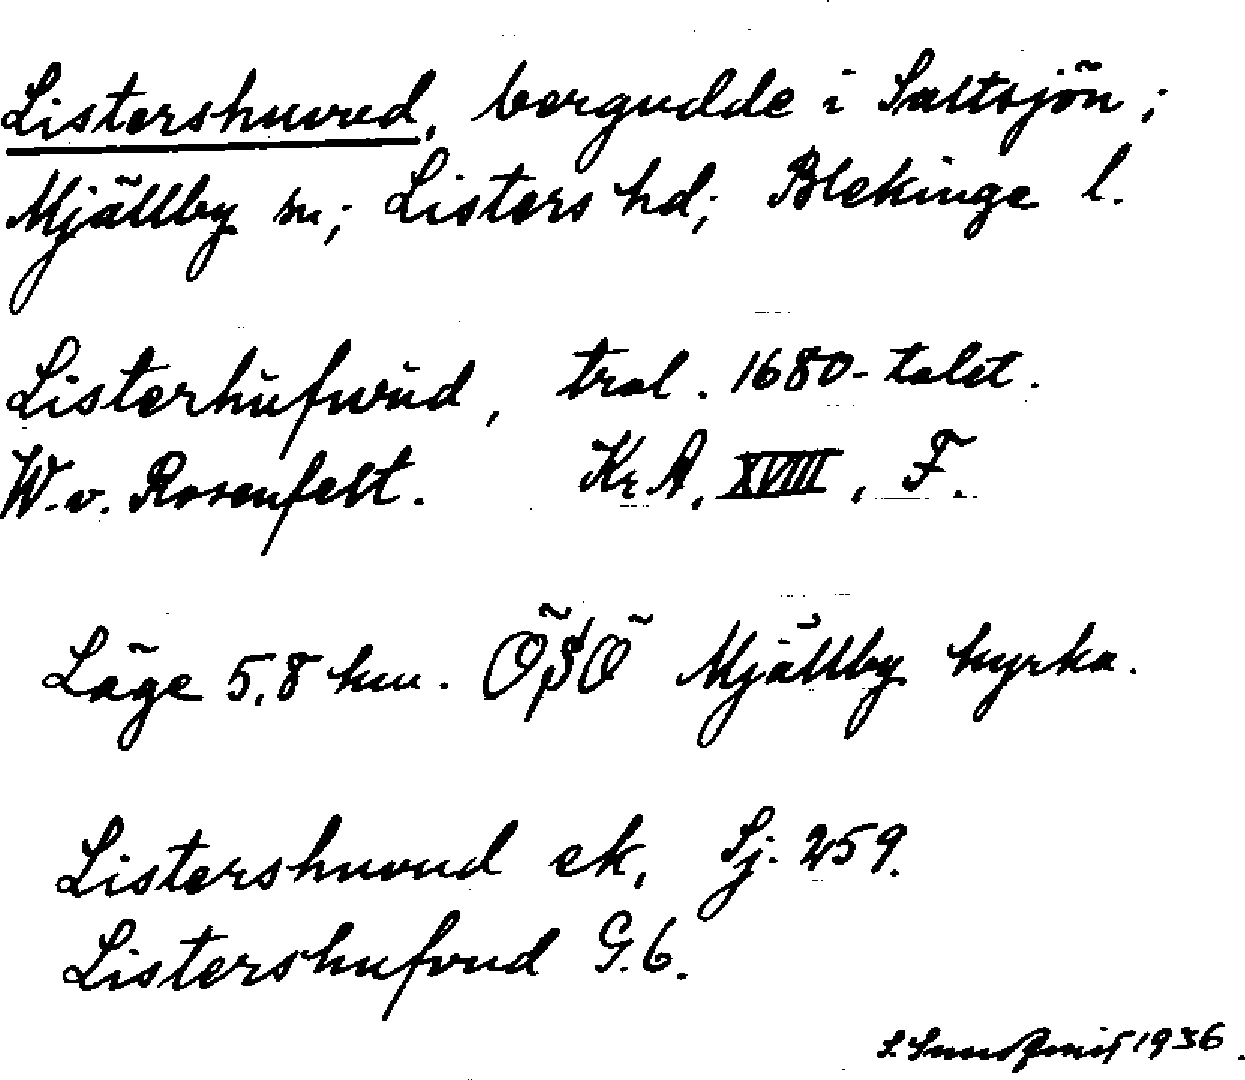 Listershuvud, bergudde i Saltsjön;
Mjällby sn; Listers hd; Blekinge l.
Listerhufwud, trol. 1680-talet.
W. v. Rosenfelt. KrA, XVIII, F.
Läge 5,8 km. ÖSÖ Mjällby kyrka.
Listershuvud ek, Sj. 259.
Listershufvud G. 6.
1936.